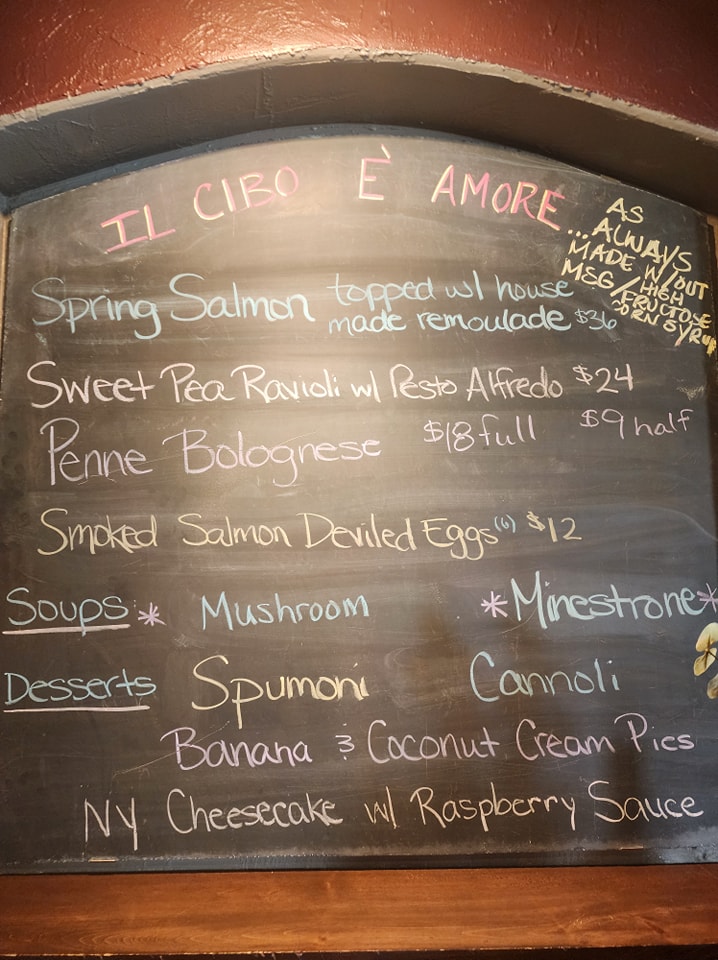 IL CIBO È AMORE
...AS ALWAYS
MADE W/OUT
MSG/HIGH
FRUCTOSE
CORN SYRUP
Spring Salmon topped w/ house
made remoulade $36
Sweet Pea Ravioli w/ Pesto Alfredo $24
Penne Bolognese $18 full $9 half
Smoked Salmon Deviled Eggs (6) $12
Soups * Mushroom *Minestrone*
Desserts Spumoni Cannoli
Banana & Coconut Cream Pies
NY Cheesecake w/ Raspberry Sauce